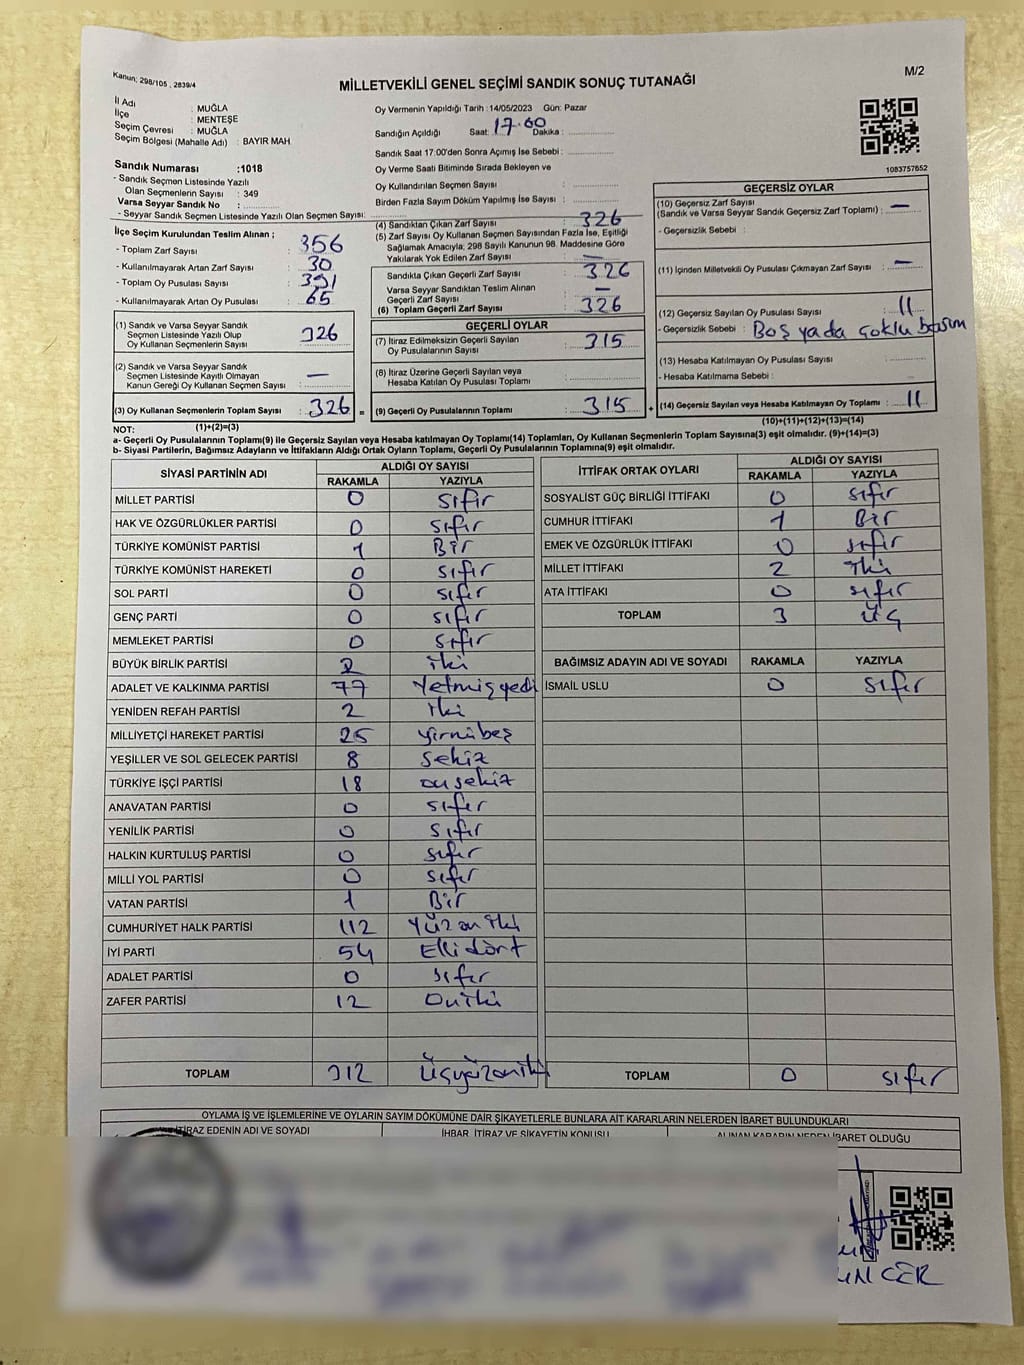 Kanun; 298/105 , 2839/4
MİLLETVEKİLİ GENEL SEÇİMİ SANDIK SONUÇ TUTANAĞI
M/2
İl Adı : MUĞLA
İlçe : MENTEŞE
Seçim Çevresi : MUĞLA
Seçim Bölgesi (Mahalle Adı) : BAYIR MAH.
Sandık Numarası :1018
- Sandık Seçmen Listesinde Yazılı
Olan Seçmenlerin Sayısı : 349
Varsa Seyyar Sandık No :
- Seyyar Sandık Seçmen Listesinde Yazılı Olan Seçmen Sayısı:
Oy Vermenin Yapıldığı Tarih :14/05/2023 Gün: Pazar
Sandığın Açıldığı Saat: 17.00 Dakika :
Sandık Saat 17.00'den Sonra Açımış İse Sebebi :
Oy Verme Saati Bitiminde Sırada Bekleyen ve
Oy Kullandırılan Seçmen Sayısı :
Birden Fazla Sayım Döküm Yapılmış İse Sayısı :
1083757652
İlçe Seçim Kurulundan Teslim Alınan ;
- Toplam Zarf Sayısı : 356
- Kullanılmayarak Artan Zarf Sayısı : 30
- Toplam Oy Pusulası Sayısı : 391
- Kullanılmayarak Artan Oy Pusulası : 65
(1) Sandık ve Varsa Seyyar Sandık
Seçmen Listesinde Yazılı Olup
Oy Kullanan Seçmenlerin Sayısı : 326
(2) Sandık ve Varsa Seyyar Sandık
Seçmen Listesinde Kayıtlı Olmayan
Kanun Gereği Oy Kullanan Seçmen Sayısı : —
(3) Oy Kullanan Seçmenlerin Toplam Sayısı : 326 =
(4) Sandıktan Çıkan Zarf Sayısı : 326
(5) Zarf Sayısı Oy Kullanan Seçmen Sayısından Fazla İse, Eşitliği
Sağlamak Amacıyla; 298 Sayılı Kanunun 98. Maddesine Göre
Yakılarak Yok Edilen Zarf Sayısı : —
Sandıkta Çıkan Geçerli Zarf Sayısı : 326
Varsa Seyyar Sandıktan Teslim Alınan
Geçerli Zarf Sayısı : —
(6) Toplam Geçerli Zarf Sayısı : 326
GEÇERLİ OYLAR
(7) İtiraz Edilmeksizin Geçerli Sayılan
Oy Pusulalarının Sayısı : 315
(8) İtiraz Üzerine Geçerli Sayılan veya
Hesaba Katılan Oy Pusulası Toplamı :
(9) Geçerli Oy Pusulalarının Toplamı : 315 +
GEÇERSİZ OYLAR
(10) Geçersiz Zarf Sayısı
(Sandık ve Varsa Seyyar Sandık Geçersiz Zarf Toplamı) : —
- Geçersizlik Sebebi :
(11) İçinden Milletvekili Oy Pusulası Çıkmayan Zarf Sayısı : —
(12) Geçersiz Sayılan Oy Pusulası Sayısı : 11
- Geçersizlik Sebebi : Boş yada çoklu basım
(13) Hesaba Katılmayan Oy Pusulası Sayısı :
- Hesaba Katılmama Sebebi :
(14) Geçersiz Sayılan veya Hesaba Katılmayan Oy Toplamı : 11
NOT: (1)+(2)=(3)
(10)+(11)+(12)+(13)=(14)
a- Geçerli Oy Pusulalarının Toplamı(9) ile Geçersiz Sayılan veya Hesaba katılmayan Oy Toplamı(14) Toplamları, Oy Kullanan Seçmenlerin Toplam Sayısına(3) eşit olmalıdır. (9)+(14)=(3)
b- Siyasi Partilerin, Bağımsız Adayların ve İttifakların Aldığı Ortak Oyların Toplamı, Geçerli Oy Pusulalarının Toplamına(9) eşit olmalıdır.
SİYASİ PARTİNİN ADI ALDIĞI OY SAYISI
RAKAMLA YAZIYLA
MİLLET PARTİSİ 0 sıfır
HAK VE ÖZGÜRLÜKLER PARTİSİ 0 sıfır
TÜRKİYE KOMÜNİST PARTİSİ 1 Bir
TÜRKİYE KOMÜNİST HAREKETİ 0 sıfır
SOL PARTİ 0 sıfır
GENÇ PARTİ 0 sıfır
MEMLEKET PARTİSİ 0 sıfır
BÜYÜK BİRLİK PARTİSİ 2 iki
ADALET VE KALKINMA PARTİSİ 77 Yetmişyedi
YENİDEN REFAH PARTİSİ 2 iki
MİLLİYETÇİ HAREKET PARTİSİ 25 yirmibeş
YEŞİLLER VE SOL GELECEK PARTİSİ 8 sekiz
TÜRKİYE İŞÇİ PARTİSİ 18 onsekiz
ANAVATAN PARTİSİ 0 sıfır
YENİLİK PARTİSİ 0 sıfır
HALKIN KURTULUŞ PARTİSİ 0 sıfır
MİLLİ YOL PARTİSİ 0 sıfır
VATAN PARTİSİ 1 Bir
CUMHURİYET HALK PARTİSİ 112 Yüzoniki
İYİ PARTİ 54 Ellidört
ADALET PARTİSİ 0 sıfır
ZAFER PARTİSİ 12 Oniki
TOPLAM 312 Üçyüzoniki
İTTİFAK ORTAK OYLARI ALDIĞI OY SAYISI
RAKAMLA YAZIYLA
SOSYALİST GÜÇ BİRLİĞİ İTTİFAKI 0 sıfır
CUMHUR İTTİFAKI 1 Bir
EMEK VE ÖZGÜRLÜK İTTİFAKI 0 sıfır
MİLLET İTTİFAKI 2 iki
ATA İTTİFAKI 0 sıfır
TOPLAM 3 Üç
BAĞIMSIZ ADAYIN ADI VE SOYADI RAKAMLA YAZIYLA
İSMAİL USLU 0 sıfır
TOPLAM 0 sıfır
OYLAMA İŞ VE İŞLEMLERİNE VE OYLARIN SAYIM DÖKÜMÜNE DAİR ŞİKAYETLERLE BUNLARA AİT KARARLARIN NELERDEN İBARET BULUNDUKLARI
İTİRAZ EDENİN ADI VE SOYADI İHBAR, İTİRAZ VE ŞİKAYETİN KONUSU ALINAN KARARIN NEDEN İBARET OLDUĞU